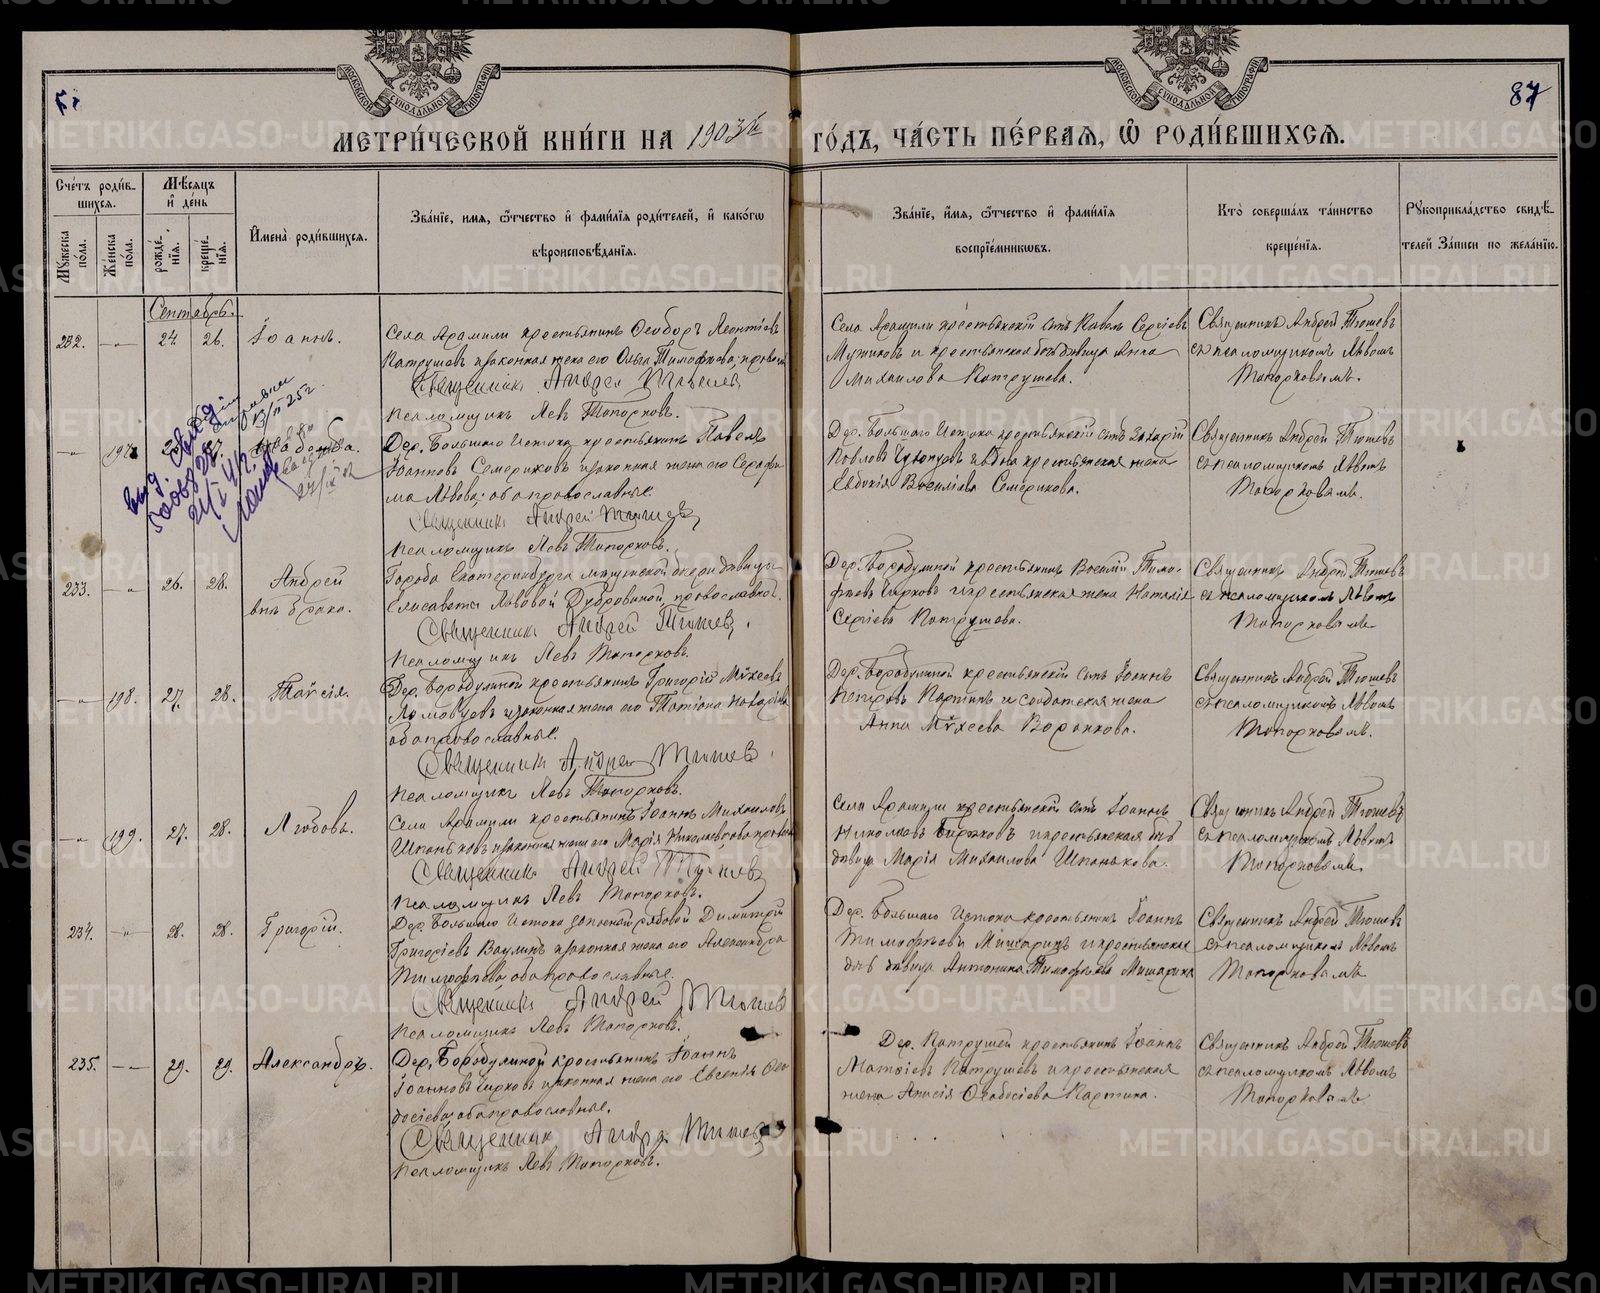 87
МЕТРИ́ЧЕСКОЙ КНИ́ГИ НА 1903й ГО́ДЪ, ЧА́СТЬ ПЕ́РВАЯ, Ѡ РОДИ́ВШИХСЯ.
Сче́тъ роди́в-
шихся.
Мѣсяцъ
и҆ де́нь
Мꙋжеска по́ла.
Же́нска по́ла.
рожде́-
нїя.
креще́-
нїя.
И҆мена̀ роди́вшихся.
Зва́нїе, имя, ѻ҆́тчество и҆ фами́лїя роди́телей, и҆ како́гѡ
вѣроисповѣ́данїя.
Зва́нїе, и҆́мя, ѻ҆́тчество и҆ фами́лїя
воспрїе́мниковъ.
Кто̀ соверша́лъ та́инство
креще́нїя.
Рꙋкоприкла́дство свидѣ́-
телей За́писи по жела́нїю.
Сентябрь.
232. 24. 26. Іоаннъ.
Села Арамили крестьянинъ Ѳеодоръ Леонтіевъ
Патрушевъ и законная жена его Ольга Тимофеева; православн
Священникъ Андрей Тюшев
Псаломщикъ Левъ Топорковъ.
Села Арамили крестьянскій сынъ Павелъ Сергіевъ
и крестьянская дочь девица Анна
Михаилова Патрушева.
Священникъ Андрей Тюшевъ
съ псаломщикомъ Львомъ
Топорковымъ.
197.
Дер. Большаго Истока крестьянинъ Павелъ
Іоанновъ Семериковъ и законная жена его Серафи-
ма Львова; оба православные.
Священникъ Андрей Тюшев
Псаломщикъ Левъ Топорковъ.
Дер. Большаго Истока крестьянскій сынъ Захарій
Павловъ и крестьянская жена
Евдокія Василіева Семерикова.
Священникъ Андрей Тюшевъ
съ псаломщикомъ Львомъ
Топорковымъ.
233. 26. 28. Андрей
внѣ брака.
Города Екатеринбурга мещанской дочери девицы
Елисаветы Львовой Дубровиной, православной.
Священникъ Андрей Тюшев
Псаломщикъ Левъ Топорковъ.
Дер. Бородулиной крестьянинъ Василій Тимо-
фѣевъ Чирковъ и крестьянская жена Наталія
Сергіева Патрушева.
Священникъ Андрей Тюшевъ
съ псаломщикомъ Львомъ
Топорковымъ
198. 27. 28. Таисія.
Дер. Бородулиной крестьянинъ Григорій Михеевъ
и законная жена его Татіана
оба православные.
Священникъ Андрей Тюшев
Псаломщикъ Левъ Топорковъ.
Дер. Бородулиной крестьянскій сынъ Іоаннъ
Петровъ Партинъ и солдатская жена
Анна Михеева Воронкова.
Священникъ Андрей Тюшевъ
съ псаломщикомъ Львомъ
Топорковымъ.
199. 27. 28. Любовь.
Села Арамили крестьянинъ Іоаннъ Михаиловъ
Шпаньковъ и законная жена его Марія Николаева; оба правосл
Священникъ Андрей Тюшев
Псаломщикъ Левъ Топорковъ.
Села Арамили крестьянскій сынъ Іоаннъ
Николаевъ и крестьянская дочь
девица Марія Михаилова Шпанькова.
Священникъ Андрей Тюшевъ
съ псаломщикомъ Львомъ
Топорковымъ.
234. 28. 28. Григорій.
Дер. Большаго Истока запасной рядовой Димитрій
Григоріевъ Ваулинъ и законная жена его Александра
Тимофѣева, оба православные.
Священникъ Андрей Тюшев
Псаломщикъ Левъ Топорковъ.
Дер. Большаго Истока крестьянинъ Іоаннъ
Тимофѣевъ Мишаринъ и крестьянская
дочь девица Антонина Тимофѣева Мишарина
Священникъ Андрей Тюшевъ
съ псаломщикомъ Львомъ
Топорковымъ
235. 29. 29. Александръ.
Дер. Бородулиной крестьянинъ Іоаннъ
Іоанновъ Чирковъ и законная жена его Евгенія Ѳео-
досіева; оба православные.
Священникъ Андрей Тюшев
Псаломщикъ Левъ Топорковъ.
Дер. Патрушей крестьянинъ Іоаннъ
Матѳіевъ Патрушевъ и крестьянская
жена Анисія Ѳеодосіева Партина.
Священникъ Андрей Тюшевъ
съ псаломщикомъ Львомъ
Топорковымъ
METRIKI.GASO-URAL.RU